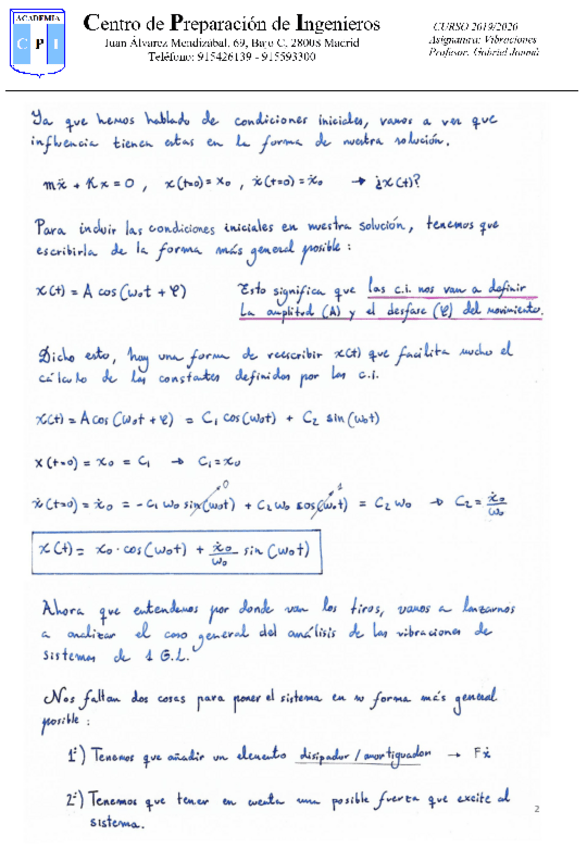 ACADEMIA
C P I
Centro de Preparación de Ingenieros
Juan Álvarez Mendizábal, 69, Bajo C, 28008 Madrid
Teléfono: 915426139 - 915593300
CURSO 2019/2020
Asignatura: Vibraciones
Profesor: Gabriel
Ya que hemos hablado de condiciones iniciales, vamos a ver que
influencia tienen estas en la forma de nuestra solución.
mẍ + Kx = 0 , x(t=0) = x₀ , ẋ(t=0) = ẋ₀ → ¿x(t)?
Para incluir las condiciones iniciales en nuestra solución, tenemos que
escribirla de la forma más general posible :
x(t) = A cos(ω₀t + φ) Esto significa que las c.i. nos van a definir
la amplitud (A) y el desfase (φ) del movimiento.
Dicho esto, hay una forma de reescribir x(t) que facilita mucho el
cálculo de las constantes definidas por las c.i.
x(t) = A cos(ω₀t + φ) = C₁ cos(ω₀t) + C₂ sin(ω₀t)
x(t=0) = x₀ = C₁ → C₁ = x₀
ẋ(t=0) = ẋ₀ = -C₁ ω₀ sin(ω₀t) + C₂ ω₀ cos(ω₀t) = C₂ ω₀ → C₂ = ẋ₀/ω₀
x(t) = x₀ · cos(ω₀t) + ẋ₀/ω₀ sin(ω₀t)
Ahora que entendemos por donde van los tiros, vamos a lanzarnos
a analizar el caso general del análisis de las vibraciones de
sistemas de 1 G.L.
Nos faltan dos cosas para poner el sistema en su forma más general
posible :
1º) Tenemos que añadir un elemento disipador / amortiguador → Fẋ
2º) Tenemos que tener en cuenta una posible fuerza que excite al
sistema.
2